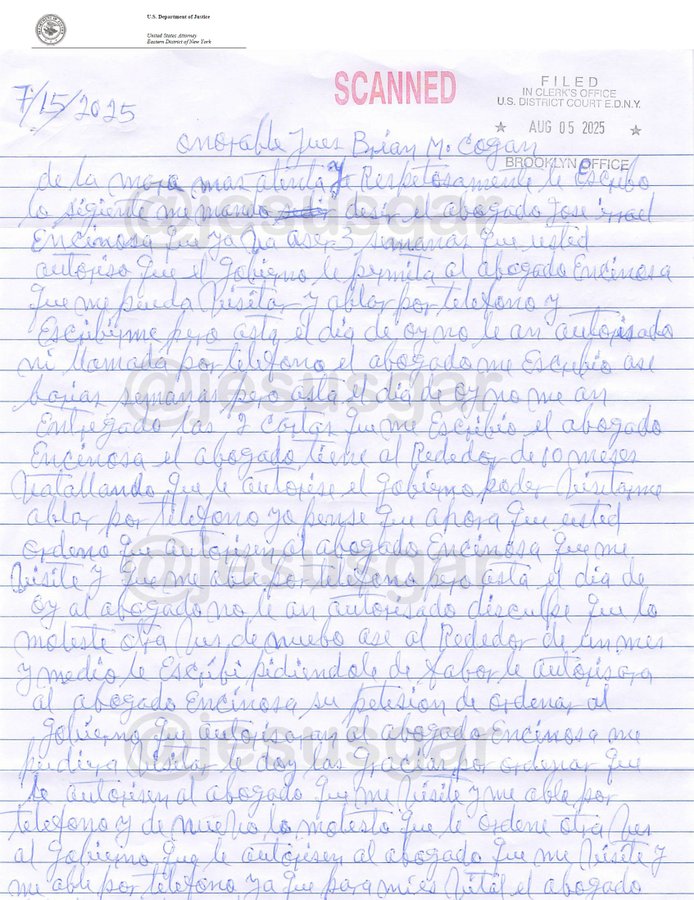 U.S. Department of Justice
United States Attorney
Eastern District of New York
SCANNED
FILED
IN CLERK'S OFFICE
U.S. DISTRICT COURT E.D.N.Y.
★ AUG 05 2025 ★
BROOKLYN OFFICE
7/15/2025
onorable Jues Brian M. Cogan
de la mas atenta y Respetosamente le Escribo
lo sigiente me mando desir el abogado Jose israel
Encinosa que ya ba aser 3 semanas que usted
autoriso que el gobierno le permita al abogado Encinosa
que me pueda Visitar y ablar por telefono y
Escribirme pero asta el dia de oy no le an autorisado
ni llamada por telefono el abogado me Escribio ase
barias semanas pero asta el dia de oy no me an
Entregado las 2 cartas que me Escribio el abogado
Encinosa el abogado tiene al Rededor de 10 meses
Vatallando que le autorise el gobierno poder Visitarme
ablar por telefono yo pense que ahora que usted
ordeno que autorisen al abogado Encinosa que me
Visite y que me able por telefono pero asta el dia de
oy al abogado no le an autorisado disculpe que lo
moleste otra Ves de nuebo ase al Rededor de un mes
y medio le Escribi pidiendole de fabor le autorisara
al abogado Encinosa su petesion de ordenar al
gobierno que autorisaran al abogado Encinosa me
pudiera Visitar le doy las gracias por ordenar que
le autorisen al abogado que me Visite y me able por
telefono y de nuebo lo molesto que le ordene otra Ves
al gobierno que le autorisen al abogado que me Visite y
me able por telefono ya que para mi es Vital el abogado
@jesusgar
@jesusgar
@jesusgar
@jesusgar